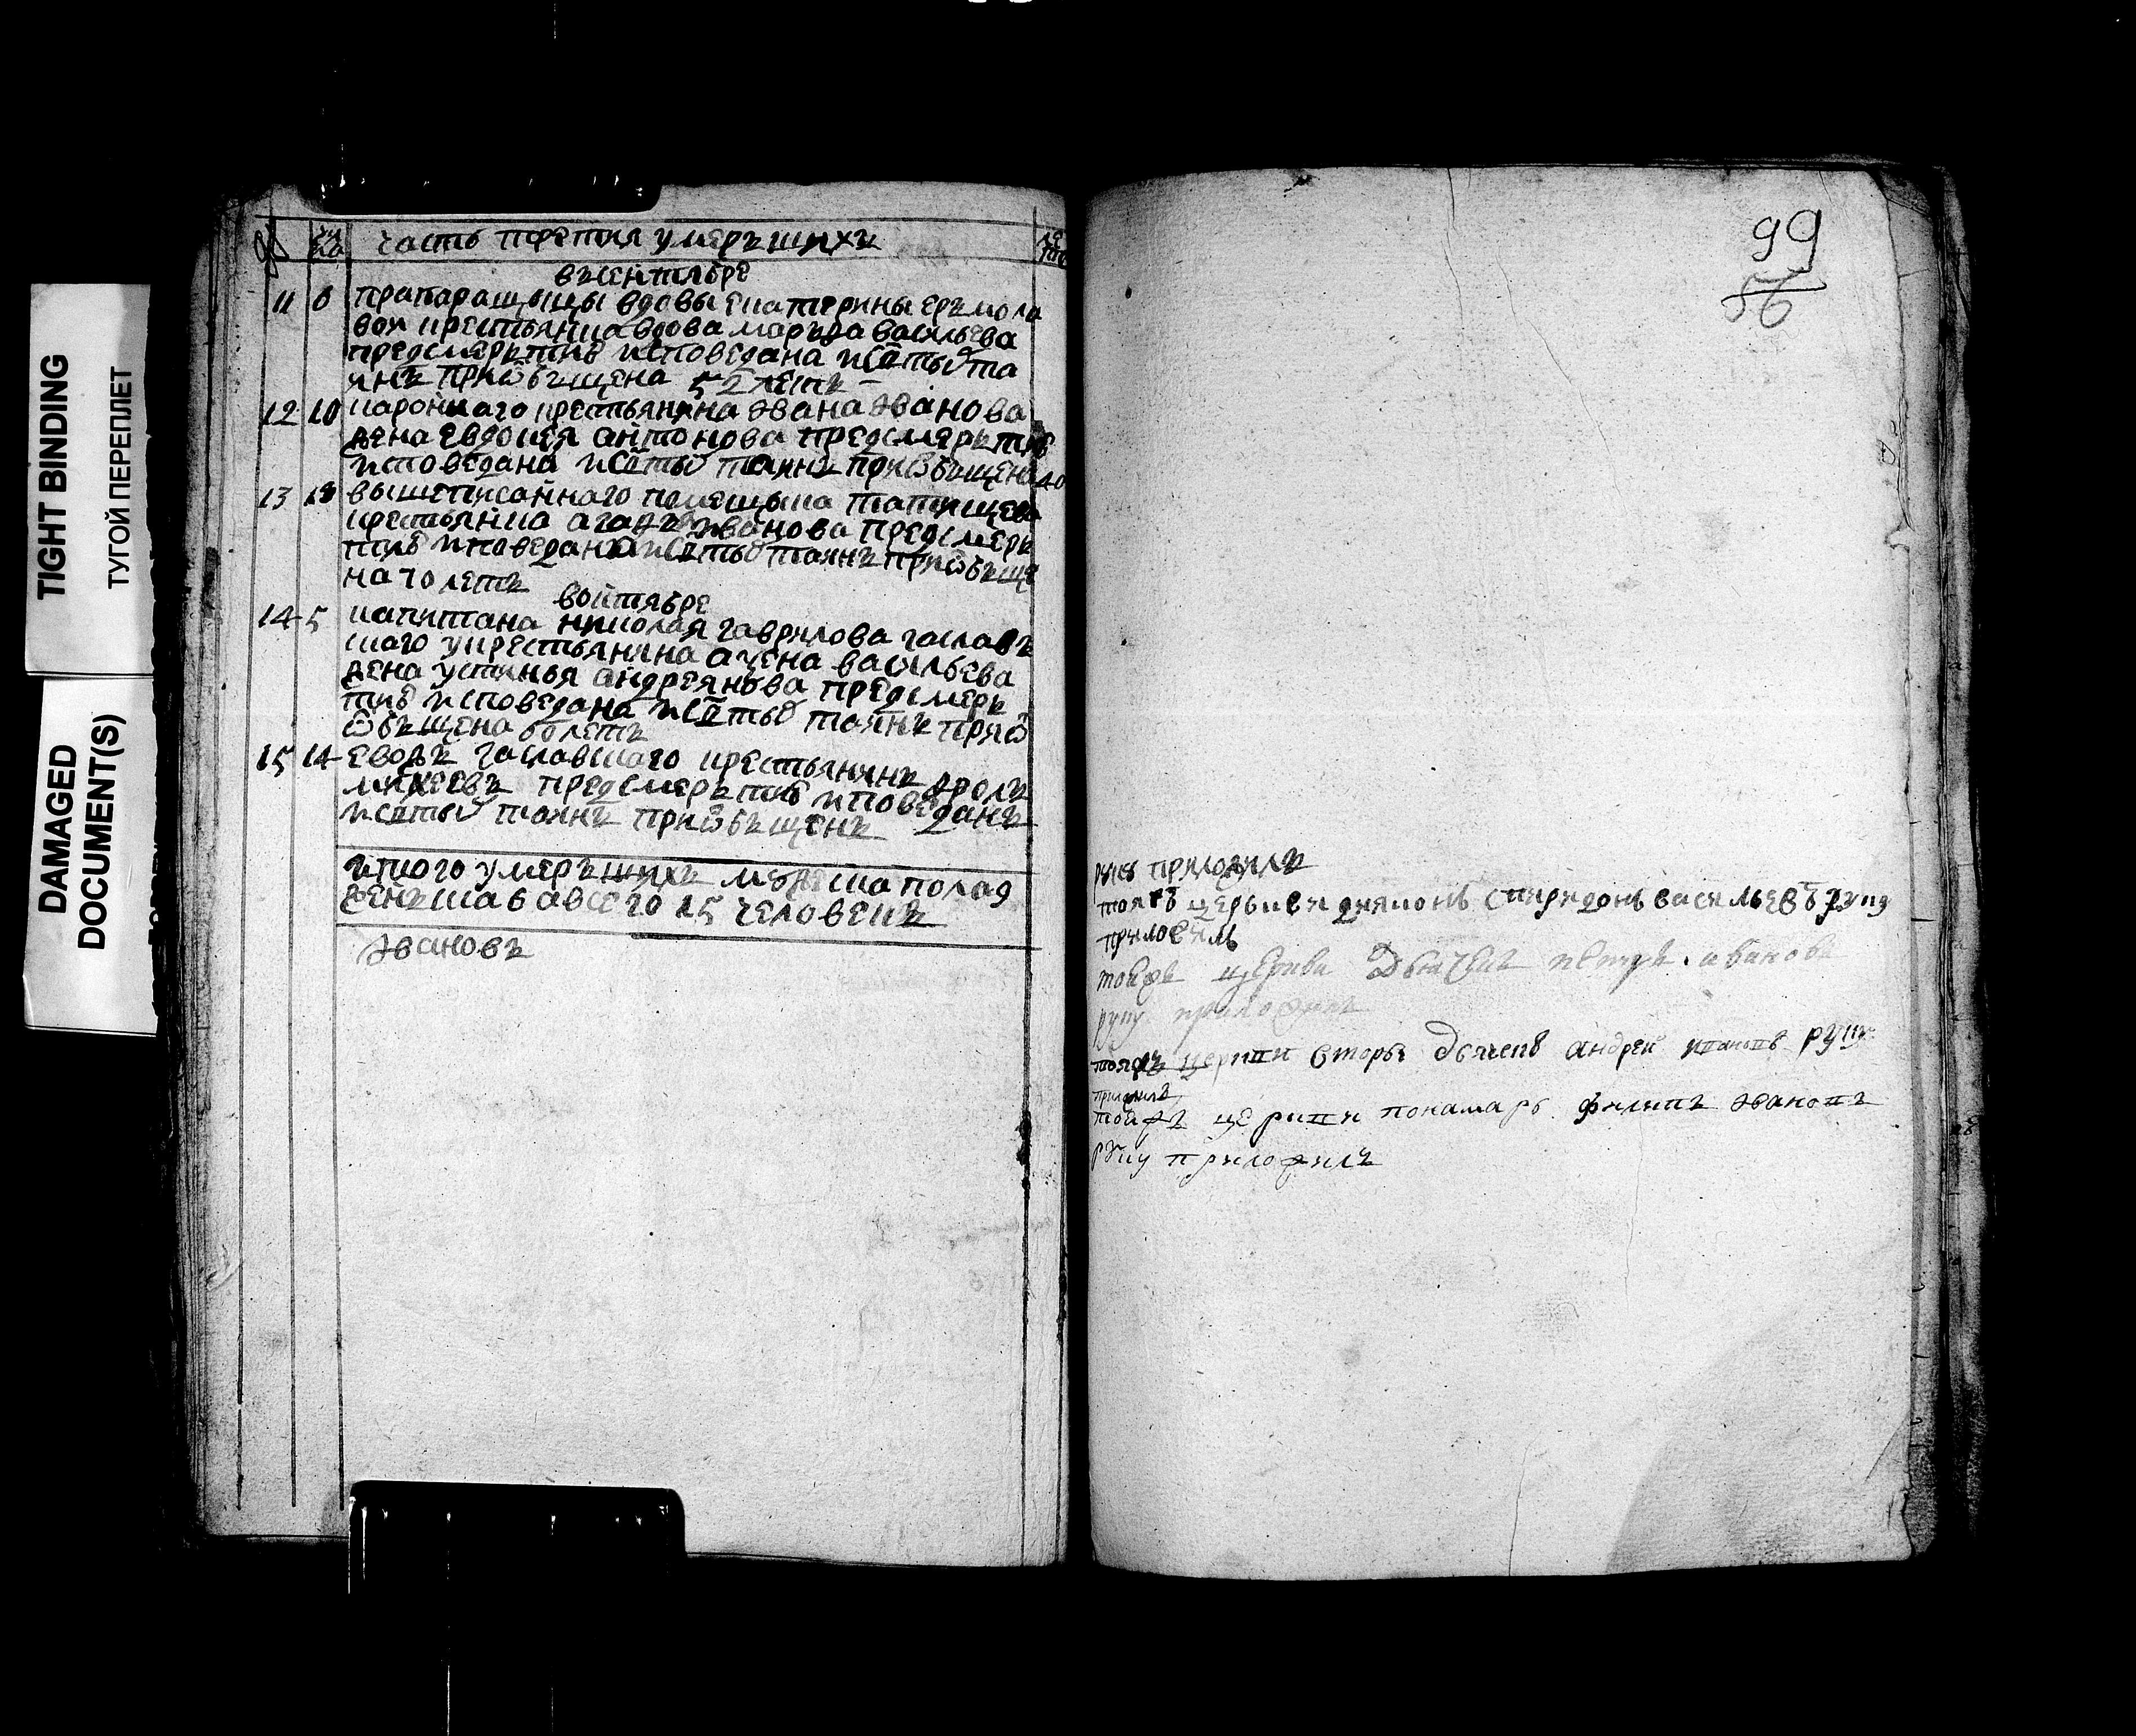 TIGHT BINDING
ТУГОЙ ПЕРЕПЛЕТ
DAMAGED
DOCUMENT(S)
часть третия умеръшихъ
въсентябре
11 8 прапаращыцы вдовы екатерины еръмола
вои крестьянка вдова маръѳа васильева
предсмертию исповедана исѵтыхъ та
инъ приѡбъщена 52 летъ
12 10 кароннаго крестьянина Ивана Иванова
жена евдокея антонова предсмерътию
исповедана исѵтыхъ таинъ приѡбъщена 40
13 18 вышеписаннаго помещыка татищева
крестьянка агаѳья иванова предсмеръ
тию исповедана исѵтыхъ таинъ приѡбъще
на 70 летъ
воктябре
14 5 капитана николая гаврилова чаславъ
скаго укрестьянина васильева
жена устинья андреянова предсмеръ
тию исповедана исѵтыхъ таинъ приѡ
бъщена 60 летъ
15 14 евожъ чаславскаго крестьянинъ ѳролъ
михеевъ предсмерътию исповеданъ
исѵтыхъ таинъ приѡбъщенъ
итого умеръшихъ мужеска пола 9
женъска 6 а всего 15 человекъ
Ивановъ
99
56
руку приложилъ
тояжъ церькви дияконъ спиридонъ васильевъ руку
приложилъ
тоижъ церкви Дьячекъ петръ ивановъ
руку приложилъ
тояжъ церкви вторы дьячекъ андрей ивановъ руку
приложилъ
тоижъ церкви понамарь филипъ Ивановъ
руку приложилъ